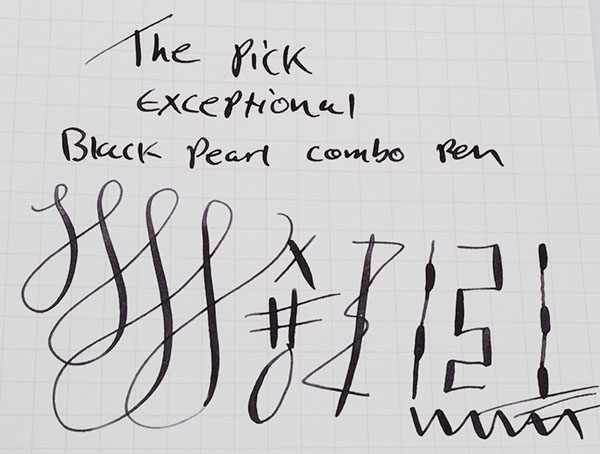 The Pick
Exceptional
Black Pearl combo Pen